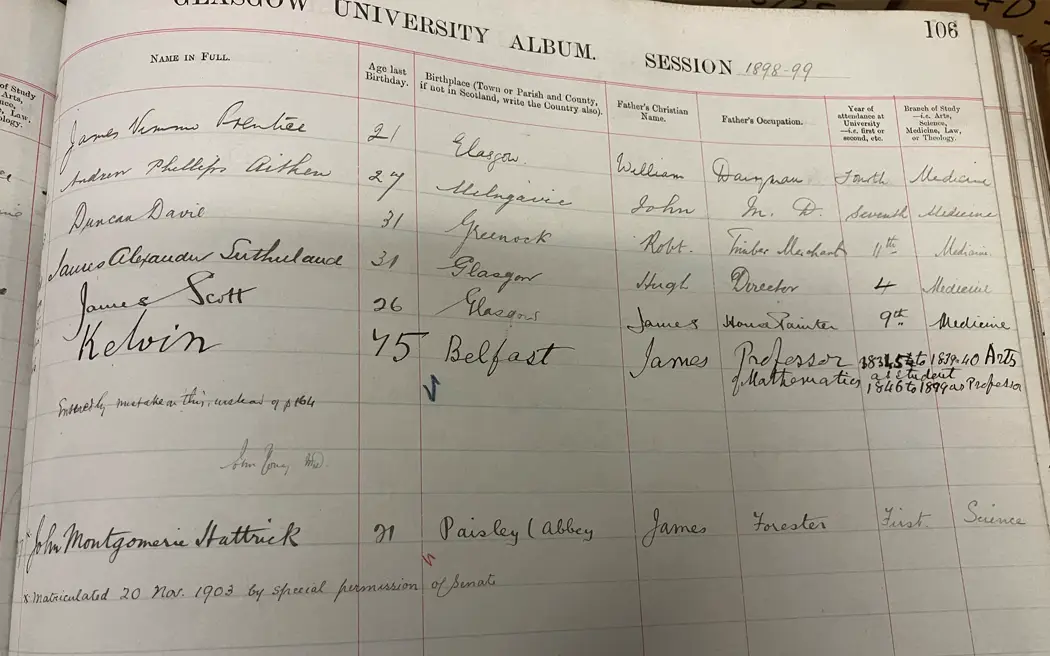 GLASGOW UNIVERSITY ALBUM. SESSION 1898-99 106
of Study Arts, Science, Law, ology.
NAME IN FULL. Age last Birthday. Birthplace (Town or Parish and County, if not in Scotland, write the Country also). Father's Christian Name. Father's Occupation. Year of attendance at University —i.e. first or second, etc. Branch of Study —i.e. Arts, Science, Medicine, Law, or Theology.
James Prentice 21 Glasgow. William Dairyman Fourth Medicine
Andrew Phillips Aitken 27 Milngavie John M. D. Seventh Medicine
Duncan Davie 31 Greenock Robt. Timber Merchant 11th Medicine
James Alexander Sutherland 31 Glasgow Hugh Director 4 Medicine
James Scott 26 Glasgow James House Painter 9th Medicine
Kelvin 75 Belfast James Professor to 1839-40 Arts
of Mathematics as student
1846 to 1899 as Professor
Entered by mistake on this, instead of p 164
John Young MD.
John Montgomerie Hattrick 21 Paisley (Abbey James Forester First. Science
x Matriculated 20 Nov. 1903 by special permission of Senate